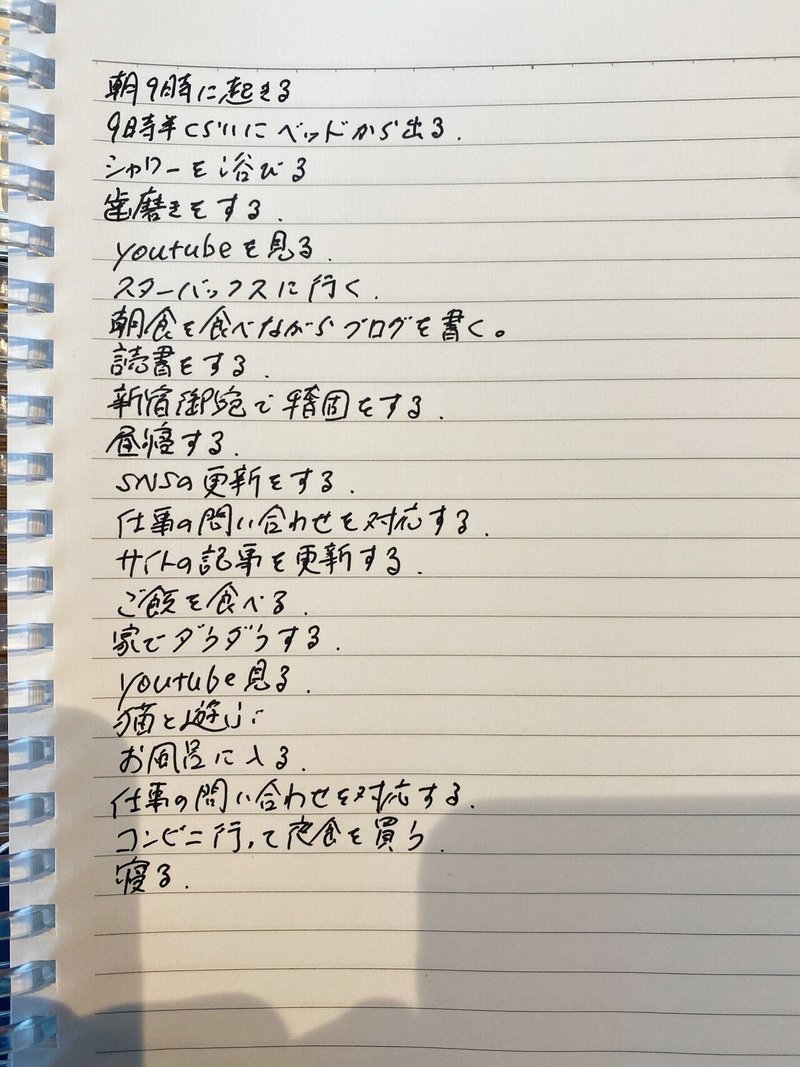 朝9時に起きる
9時半くらいにベッドから出る.
シャワーを浴びる
歯磨きをする.
youtubeを見る.
スターバックスに行く.
朝食を食べながらブログを書く。
読書をする.
新宿御苑で をする.
昼寝する.
SNSの更新をする.
仕事の問い合わせを対応する.
サイトの記事を更新する.
ご飯を食べる.
家でダラダラする.
youtube見る.
猫と遊ぶ
お風呂に入る.
仕事の問い合わせを対応する.
コンビニ行って夜食を買う.
寝る.